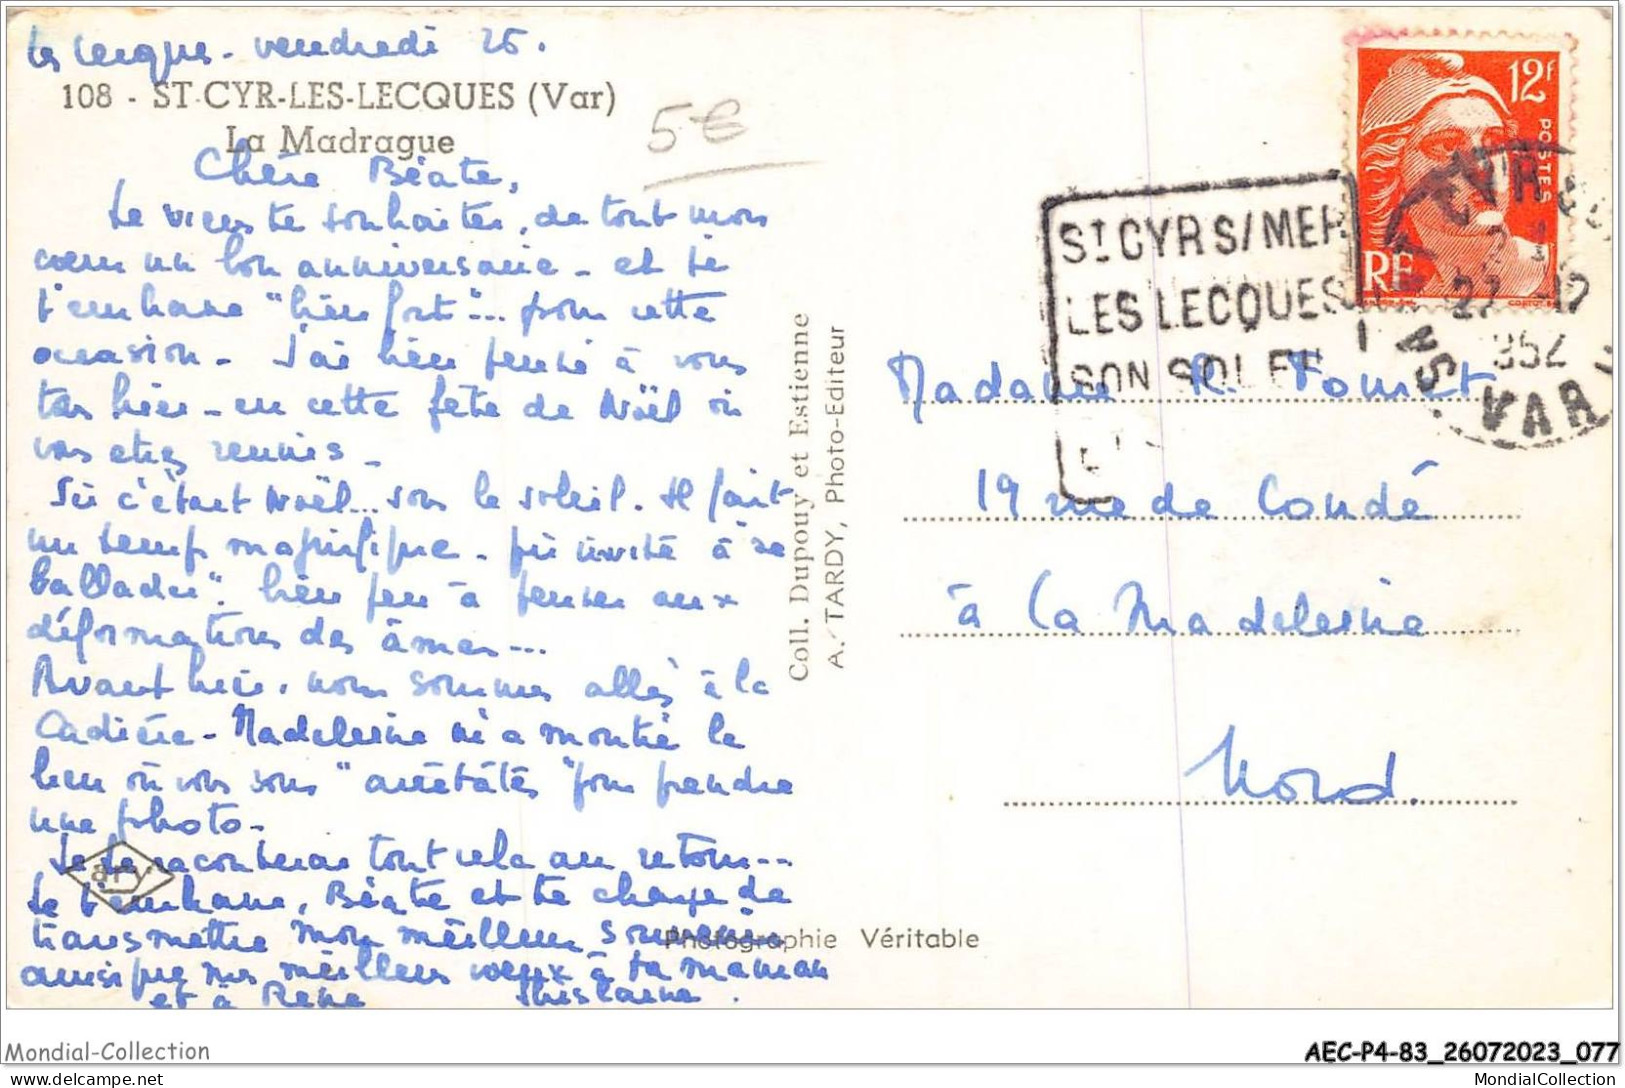 Les Lecques - vendredi 26.
108 - ST-CYR-LES-LECQUES (Var)
La Madrague
5€
Chère Béate,
Je viens te souhaiter, de tout mon
cœur un bon anniversaire - et je
t'embrasse "bien fort"... pour cette
occasion - J'ai bien pensé à vous
tous hier - en cette fête de Noël où
vous étiez réunis -
Ici c'était Noël... sous le soleil. Il fait
un temps magnifique - qui invite à se
"ballader". bien peu à penser aux
déformations des âmes...
Avant hier, nous sommes allés à la
Cadière - Madeleine m'a montré le
lieu où vous vous "arrêtâtes" pour prendre
une photo -
Je te raconterai tout cela au retour...
ary
Je t'embrasse, Béate et te charge de
transmettre mon meilleur souvenir
ainsi que mes meilleurs vœux à ta maman
et à René Ghislaine.
Coll. Dupouy et Estienne
A. TARDY, Photo-Editeur
Photographie Véritable
12f
POSTES
RF
ST CYR S/MER
LES LECQUES
SON SOLEIL
ST CYR
27 -12
952
VAR
Madame R.
19 rue de Condé
à La Madeleine
Nord.
Mondial-Collection
AEC-P4-83_26072023_077
delcampe.net
MondialCollection